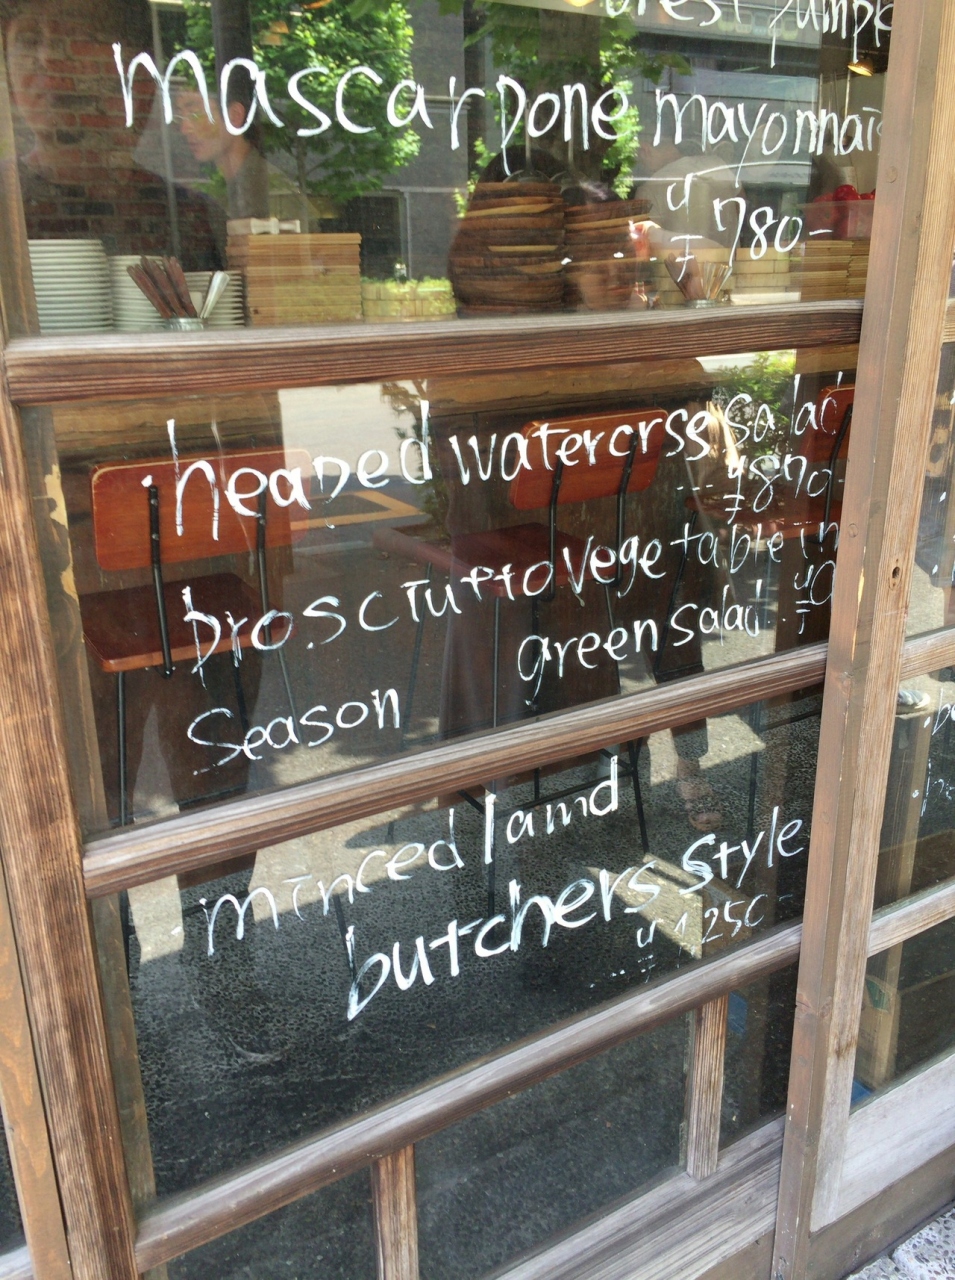 mascarpone mayonnai
¥780-
· heaped watercrss salad
---¥870-
prosciutto vegetable in
Season green salad
· minced lamd
butchers style
--- ¥1250-